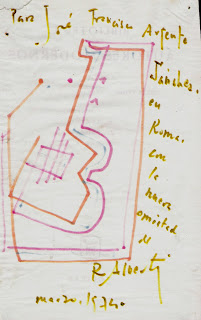 Para José Francisco Argente
Sánchez,
en
Roma,
con
la
nueva
amistad
de
R. Alberti
marzo. 1974.